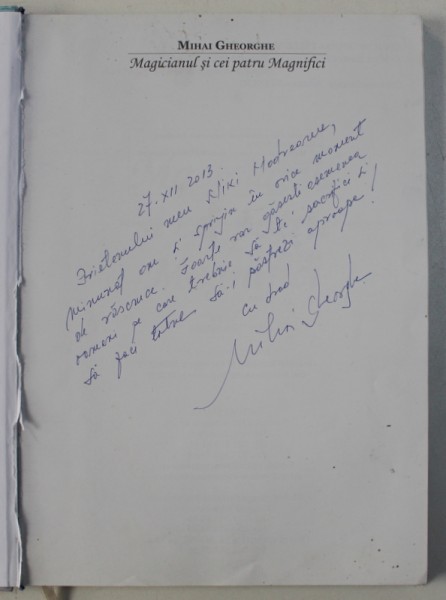 MIHAI GHEORGHE
Magicianul și cei patru Magnifici
27.XII.2013
Prietenului meu
minunat om și sprijin în orice moment
de răscruce. Foarte rar găsești asemenea
oameni pe care trebuie să te sacrifici și
să faci totul să-i păstrezi aproape!
Cu drag
Mihai Gheorghe